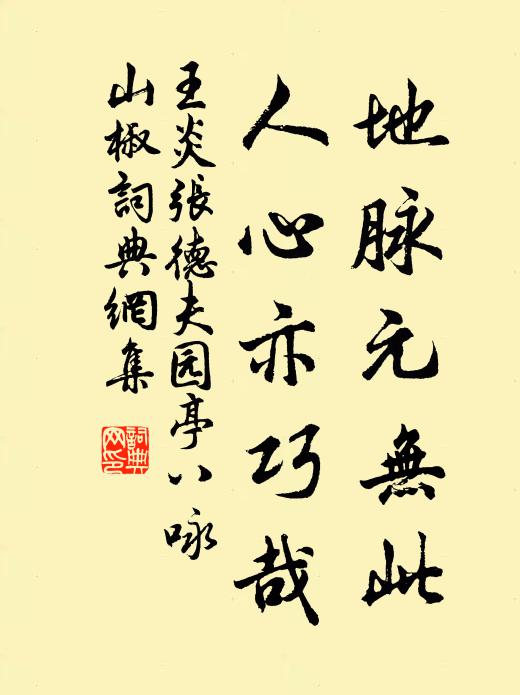 地脉元無此
人心亦巧哉
王炎張德夫园亭八咏
山椒詞典網集
詞典網印